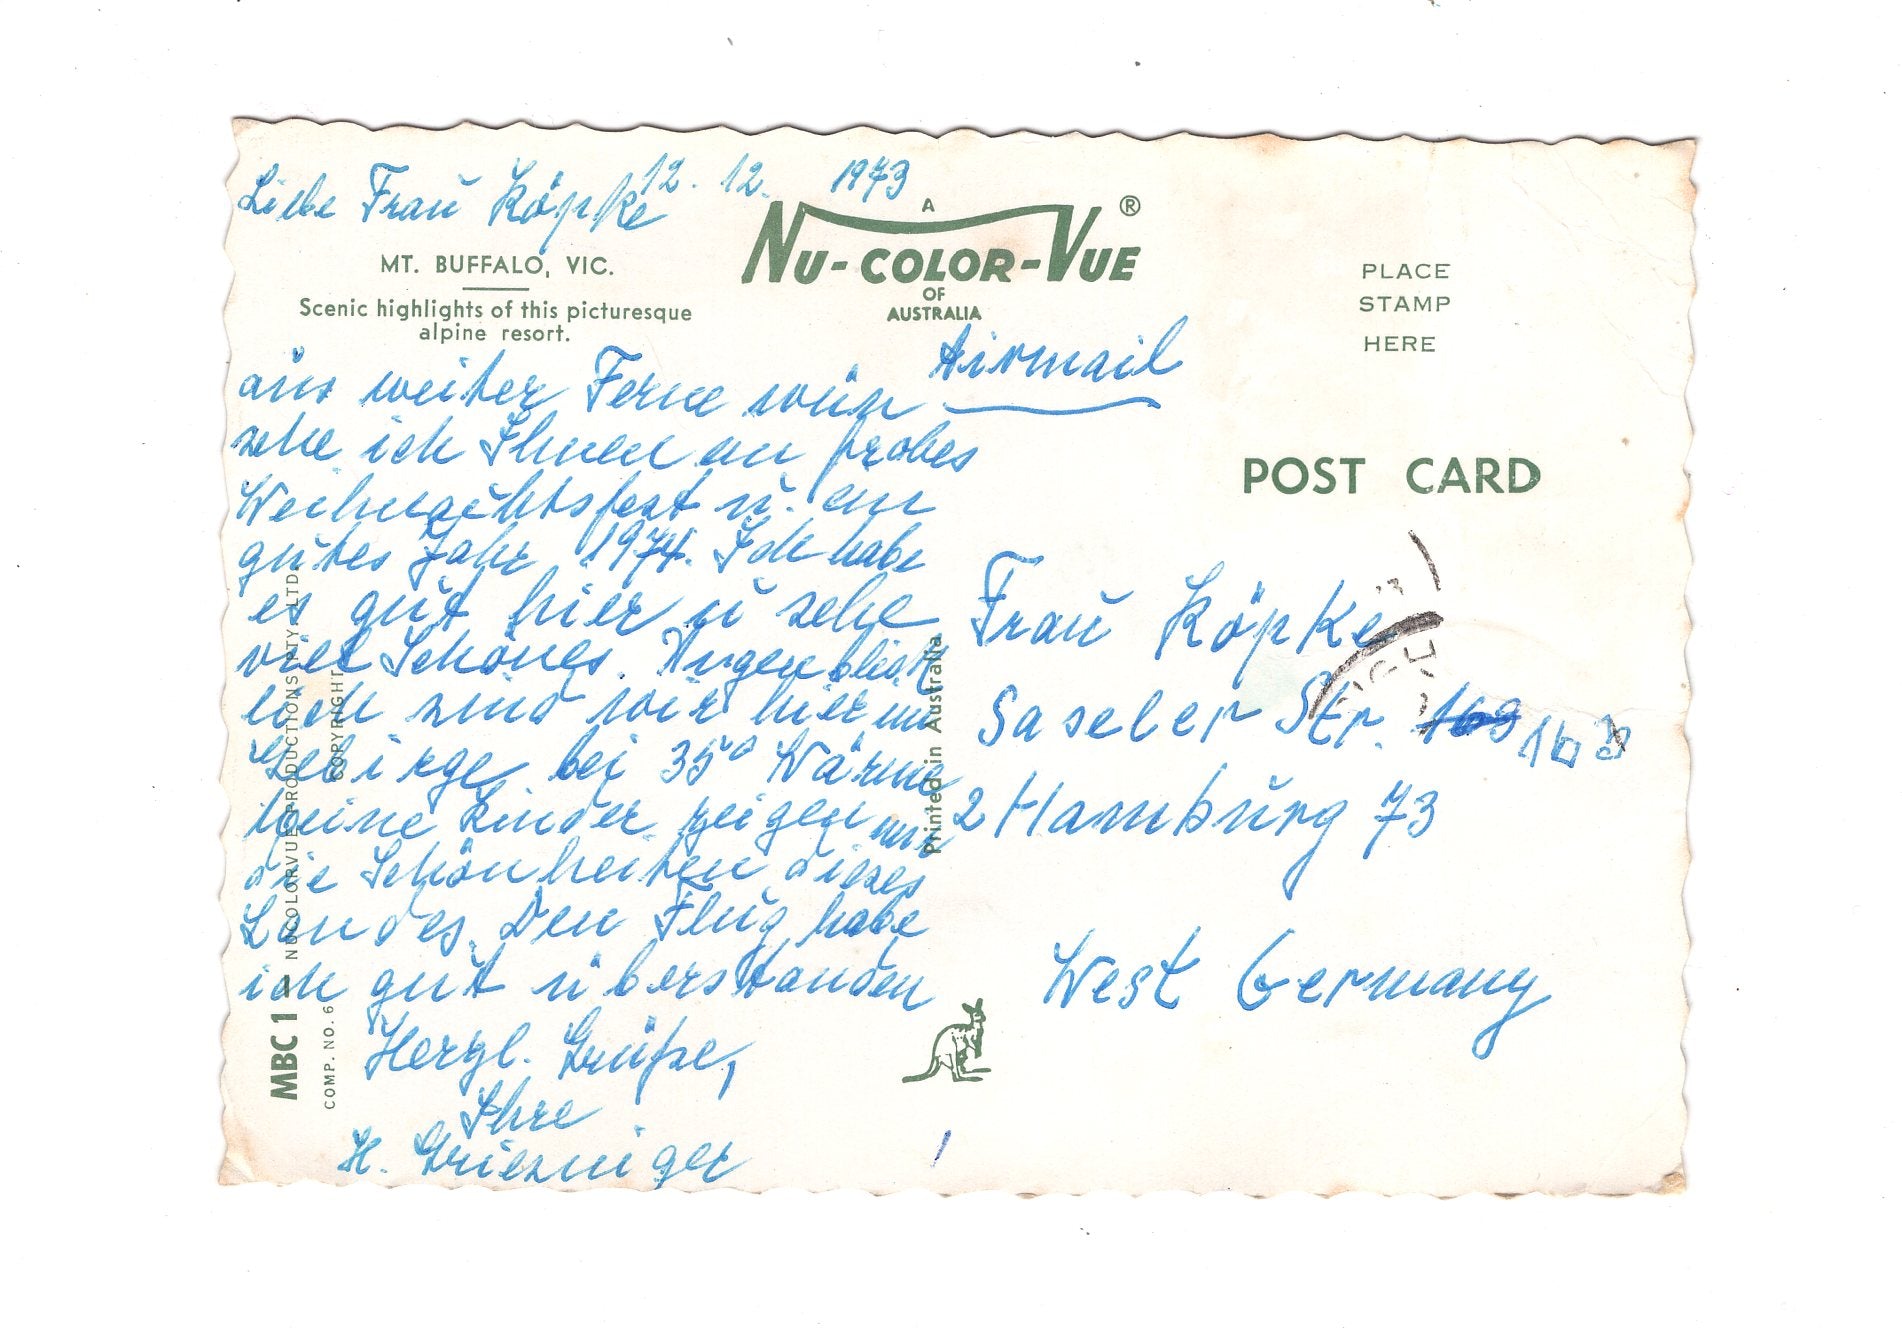 12. 12. 1973
Liebe Frau Köpke
MT. BUFFALO, VIC.
Scenic highlights of this picturesque
alpine resort.
A
NU-COLOR-VUE ®
OF
AUSTRALIA
PLACE
STAMP
HERE
Airmail
POST CARD
aus weiter Ferne wün
sche ich Ihnen ein frohes
Weihnachtsfest u. ein
gutes Jahr 1974. Ich habe
es gut hier u sehe
viel Schönes. Augenblick
lich sind wir hier im
Gebirge bei 35° Wärme
Meine Kinder zeigen mir
die Schönheiten dieses
Landes. Den Flug habe
ich gut überstanden
Herzl. Grüße,
Ihre
H.
Frau Köpke
Saseler Str. 16
2 Hamburg 73
West Germany
MBC 1 — NUCOLORVUE PRODUCTIONS PTY. LTD.
COMP. NO. 6 COPYRIGHT
Printed in Australia